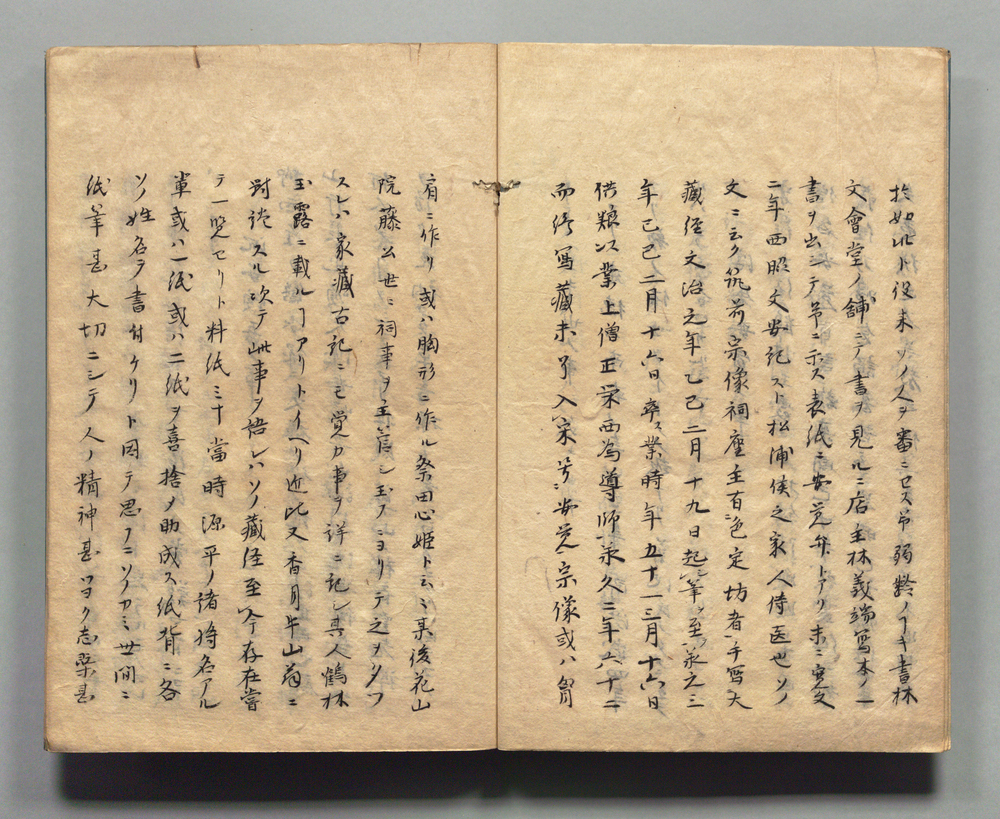 於如此ト従来ソノ人ヲ審ニセス弟弱齢ノトキ書林
文會堂ノ舗ニテ書ヲ見ルニ店主林義端写本ノ一
書ヲ出シテ弟ニ示ス表紙ニ安覚弁トアリ末ニ寛文
二年西照文安記スト松浦侯之家人侍医也ソノ
文ニ云ク筑前宗像祠座主百色定坊者手写大
藏經文治元年乙巳二月十九日起筆至承元三
年己巳二月十六日卒業時年五十一三月十六日
供頼以業上僧正栄西為導師承久二年六十二
而終写藏未曽入宋号安覚宗像或ハ胷
肩ニ作リ或ハ胸形ニ作ル祭田心姫ト云云某後花山
院藤公世ニ祠事ヲ主管シ玉フニヨリテ之ヲタツ
スレハ家藏古記ニモ覚カ事ヲ詳ニ記シ其人鶴林
玉露ニ載ルヿアリトイヘリ近比又香月牛山翁ニ
對談スル次テ此事ヲ語レハソノ藏経至今存在嘗
テ一覧セリト料紙ミナ當時源平ノ諸将名アル
軍或ハ一紙或ハ二紙ヲ喜捨ノ助成ス紙背ニ各
ソノ姓名ヲ書付ケリト因テ思フニソノカミ世間ニ
紙筆甚大切ニシテ人ノ精神甚ツヨク志槩甚